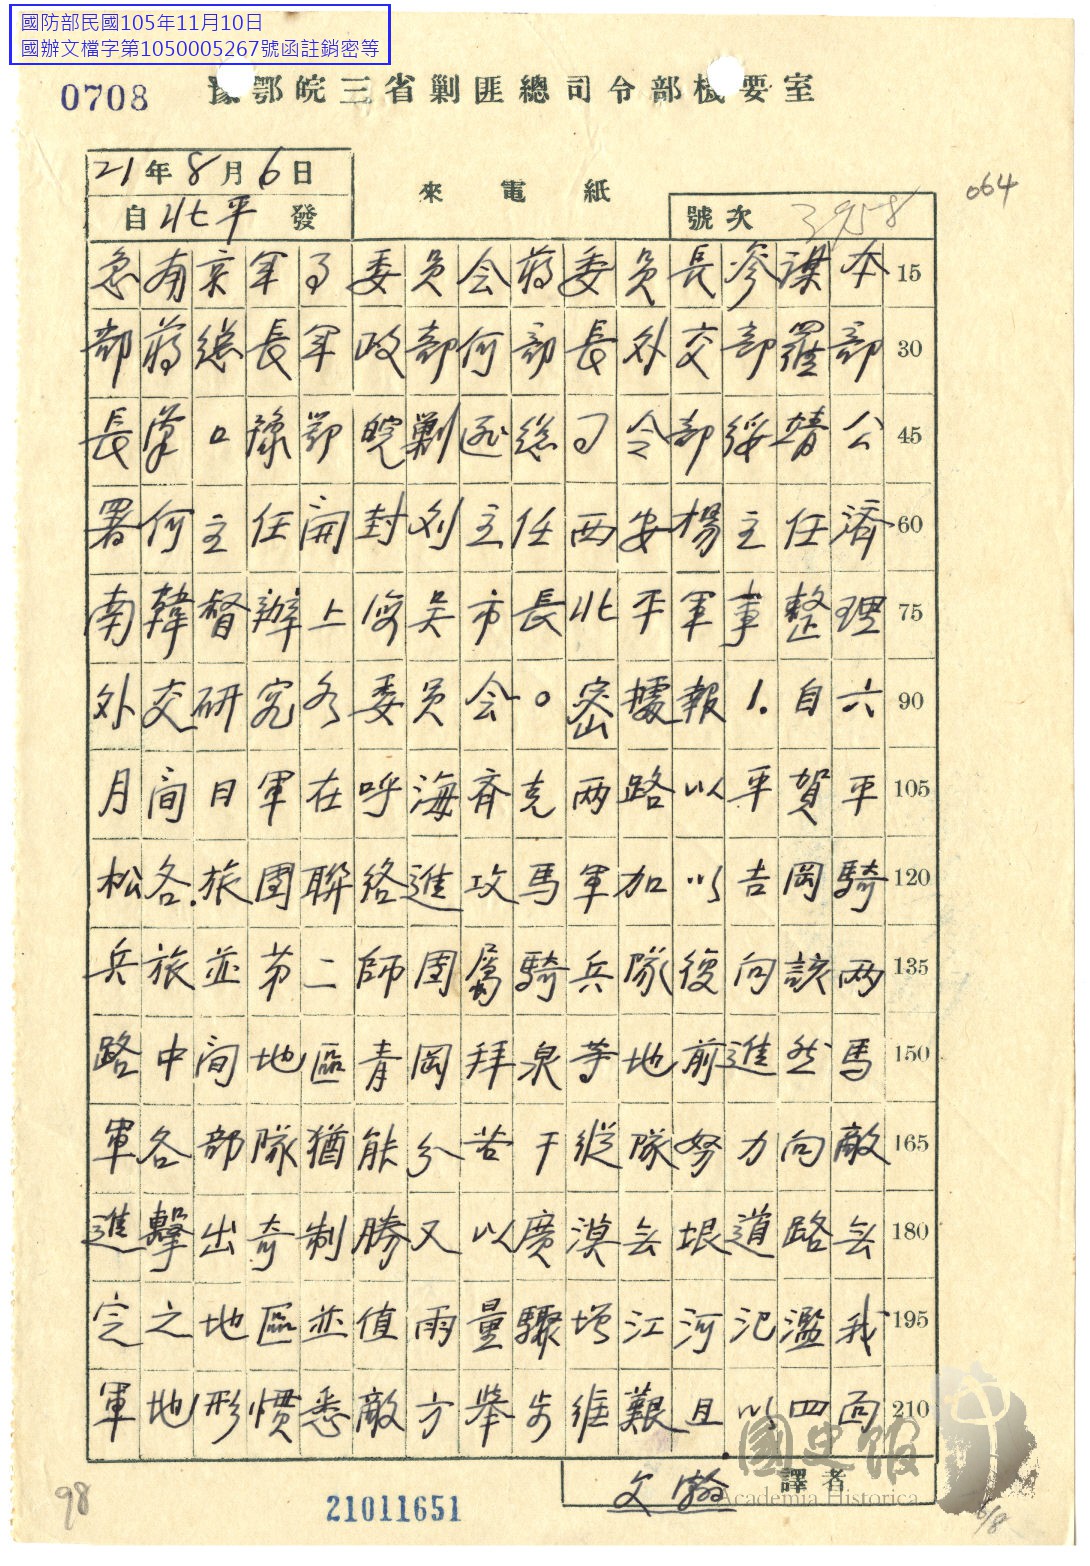 國防部民國105年11月10日
國辦文檔字第1050005267號函註銷密等
0708
豫鄂皖三省剿匪總司令部機要室
21年8月6日
自北平發
來電紙
號次 3958
064
急南京軍司委員会蔣委員長參謀本 15
部蔣總長軍政部何部長外交部羅部 30
長漢口豫鄂皖剿匪總司令部綏靖公 45
署何主任開封刘主任西安楊主任濟 60
南韓督辦上海吴市長北平軍事整理 75
外交研究各委員会。密據報1.自六 90
月間日軍在呼海齊克兩路以平賀平 105
松各.旅團聯絡進攻馬軍加以吉岡騎 120
兵旅並第二師團屬騎兵隊復向該兩 135
路中間地區青岡拜泉等地前進然馬 150
軍各部隊猶能分若干縱隊努力向敵 165
進擊出奇制勝又以廣漠无垠道路无 180
定之地區並值雨量驟增江河氾濫我 195
軍地形慣悉敵方舉步維艱且以四面 210
譯者 文翰
國史館
Academia Historica
98
21011651
6/8